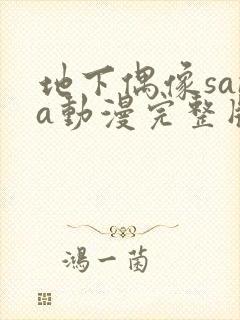 地下偶像sa
a動漫完整
鴻一菌